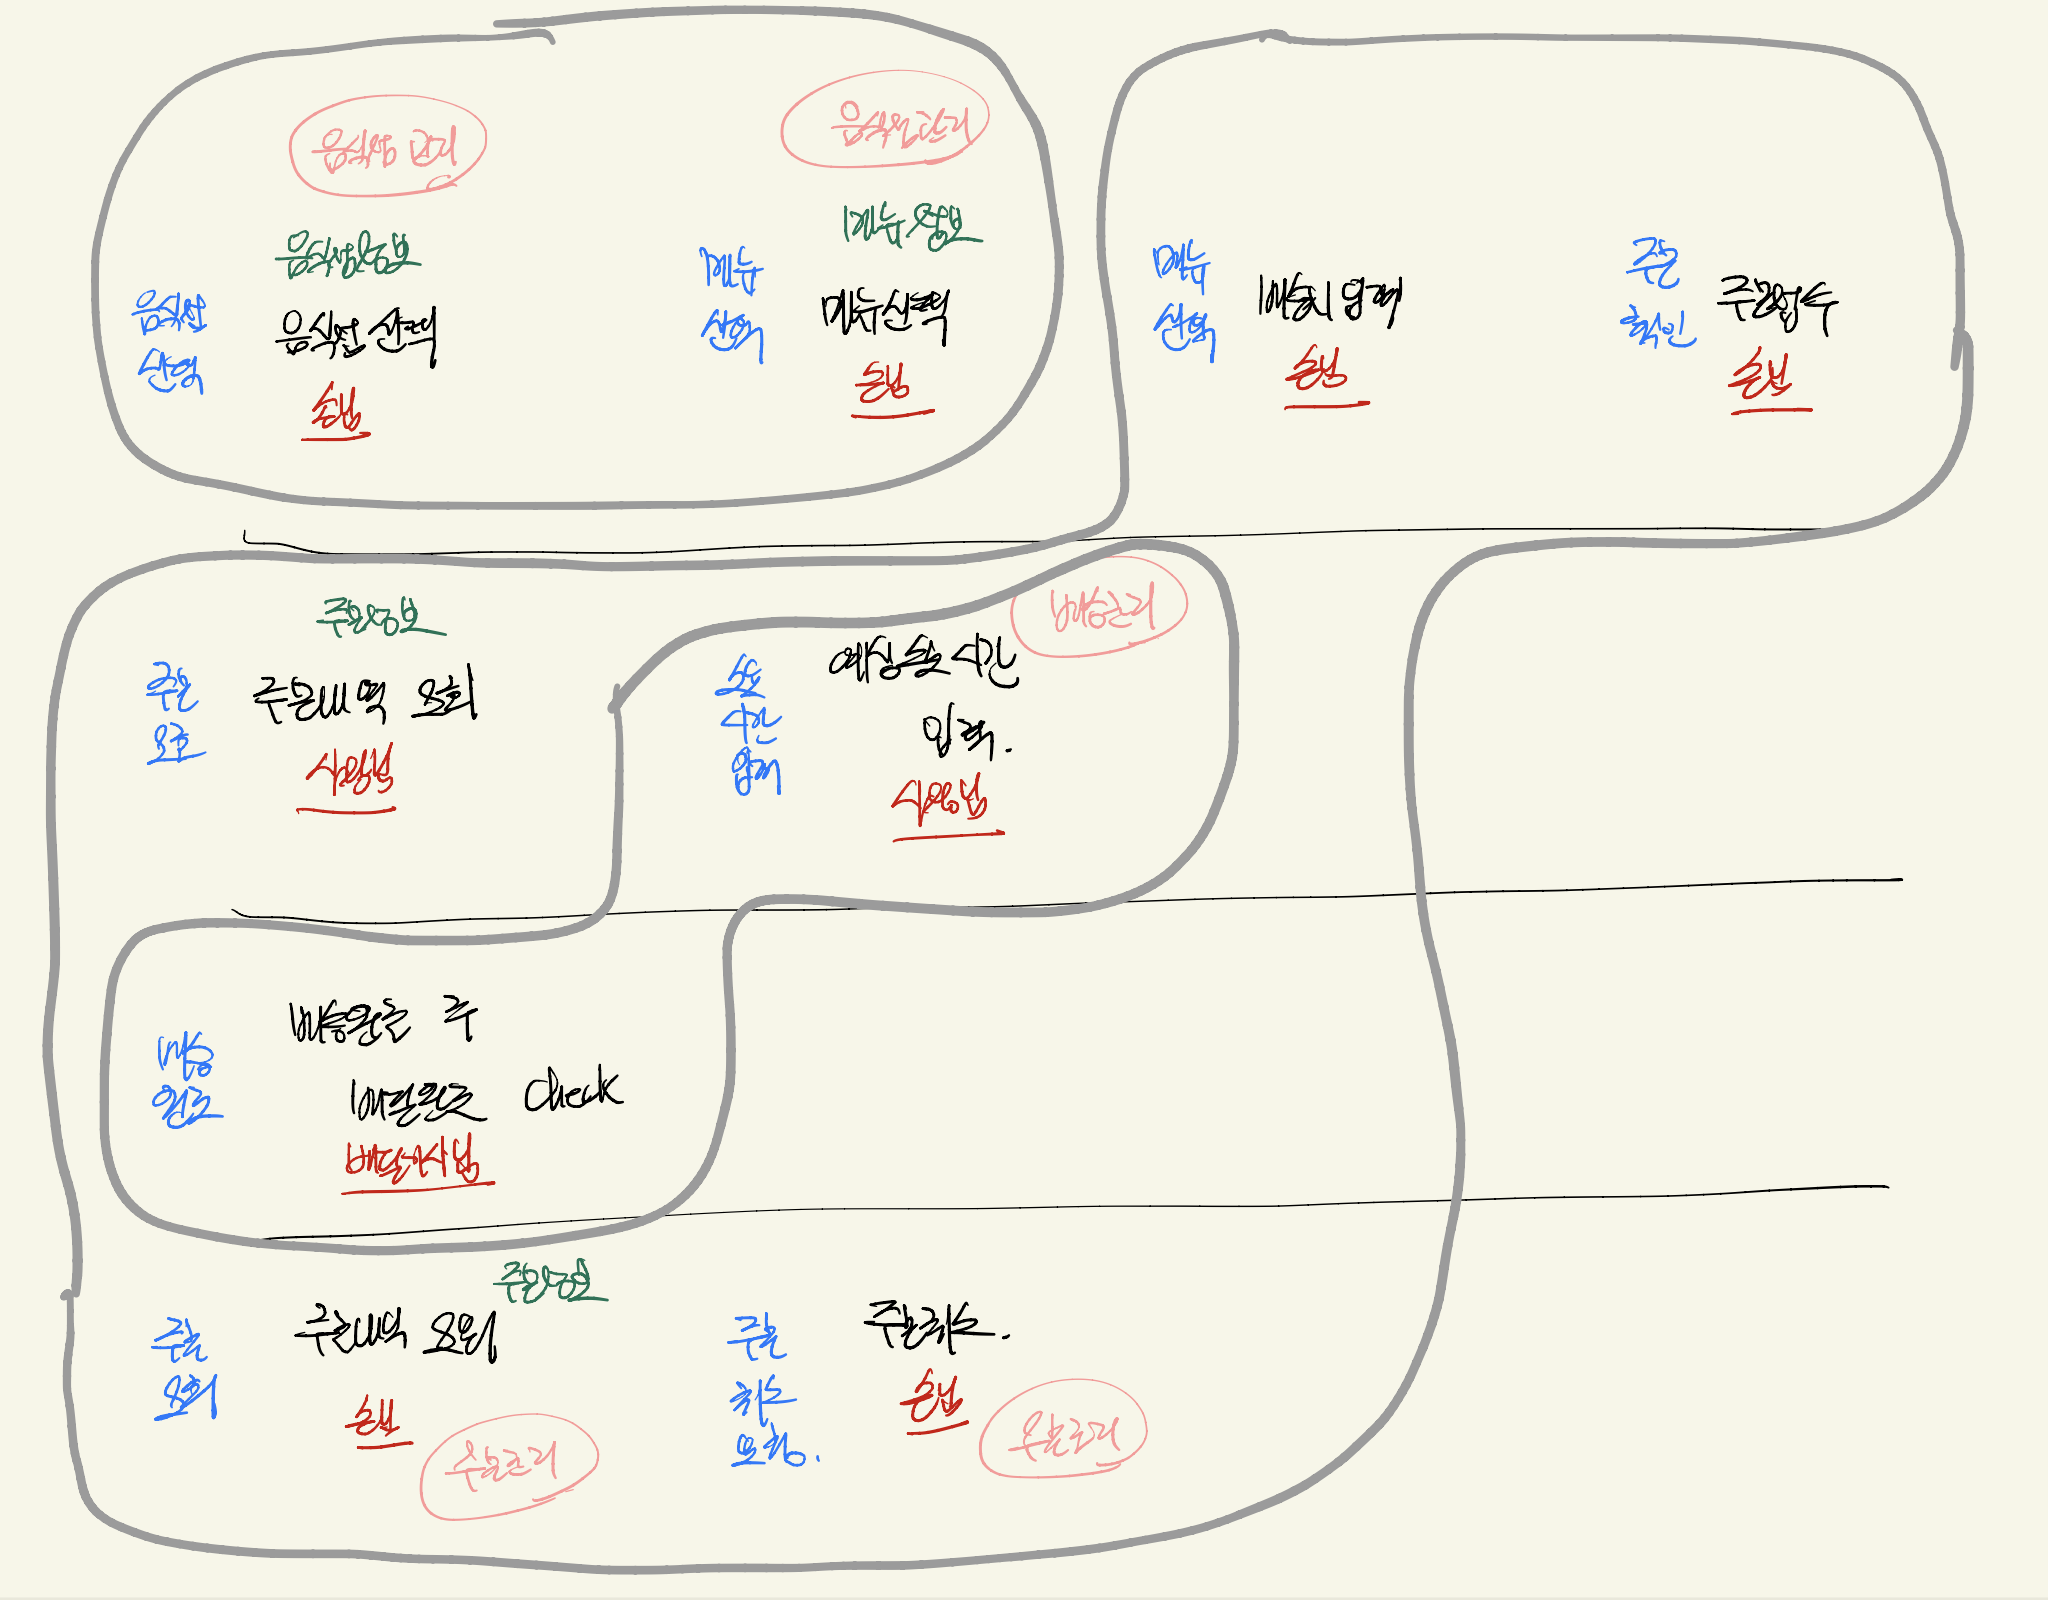 음식점 관리
음식점 관리
음식점정보
메뉴정보
음식점
선택
음식점 선택
손님
메뉴
선택
메뉴선택
손님
메뉴
선택
손님
주문
확인
주문접수
손님
주문정보
주문
주문내역 조회
사장님
배송관리
소요
시간
입력
예상소요시간
입력.
사장님
배송
완료
배송완료 후
배달완료 check
배달기사님
주문정보
주문
조회
주문내역 조회
손님
주문관리
주문
취소
요청.
주문취소.
손님
주문관리